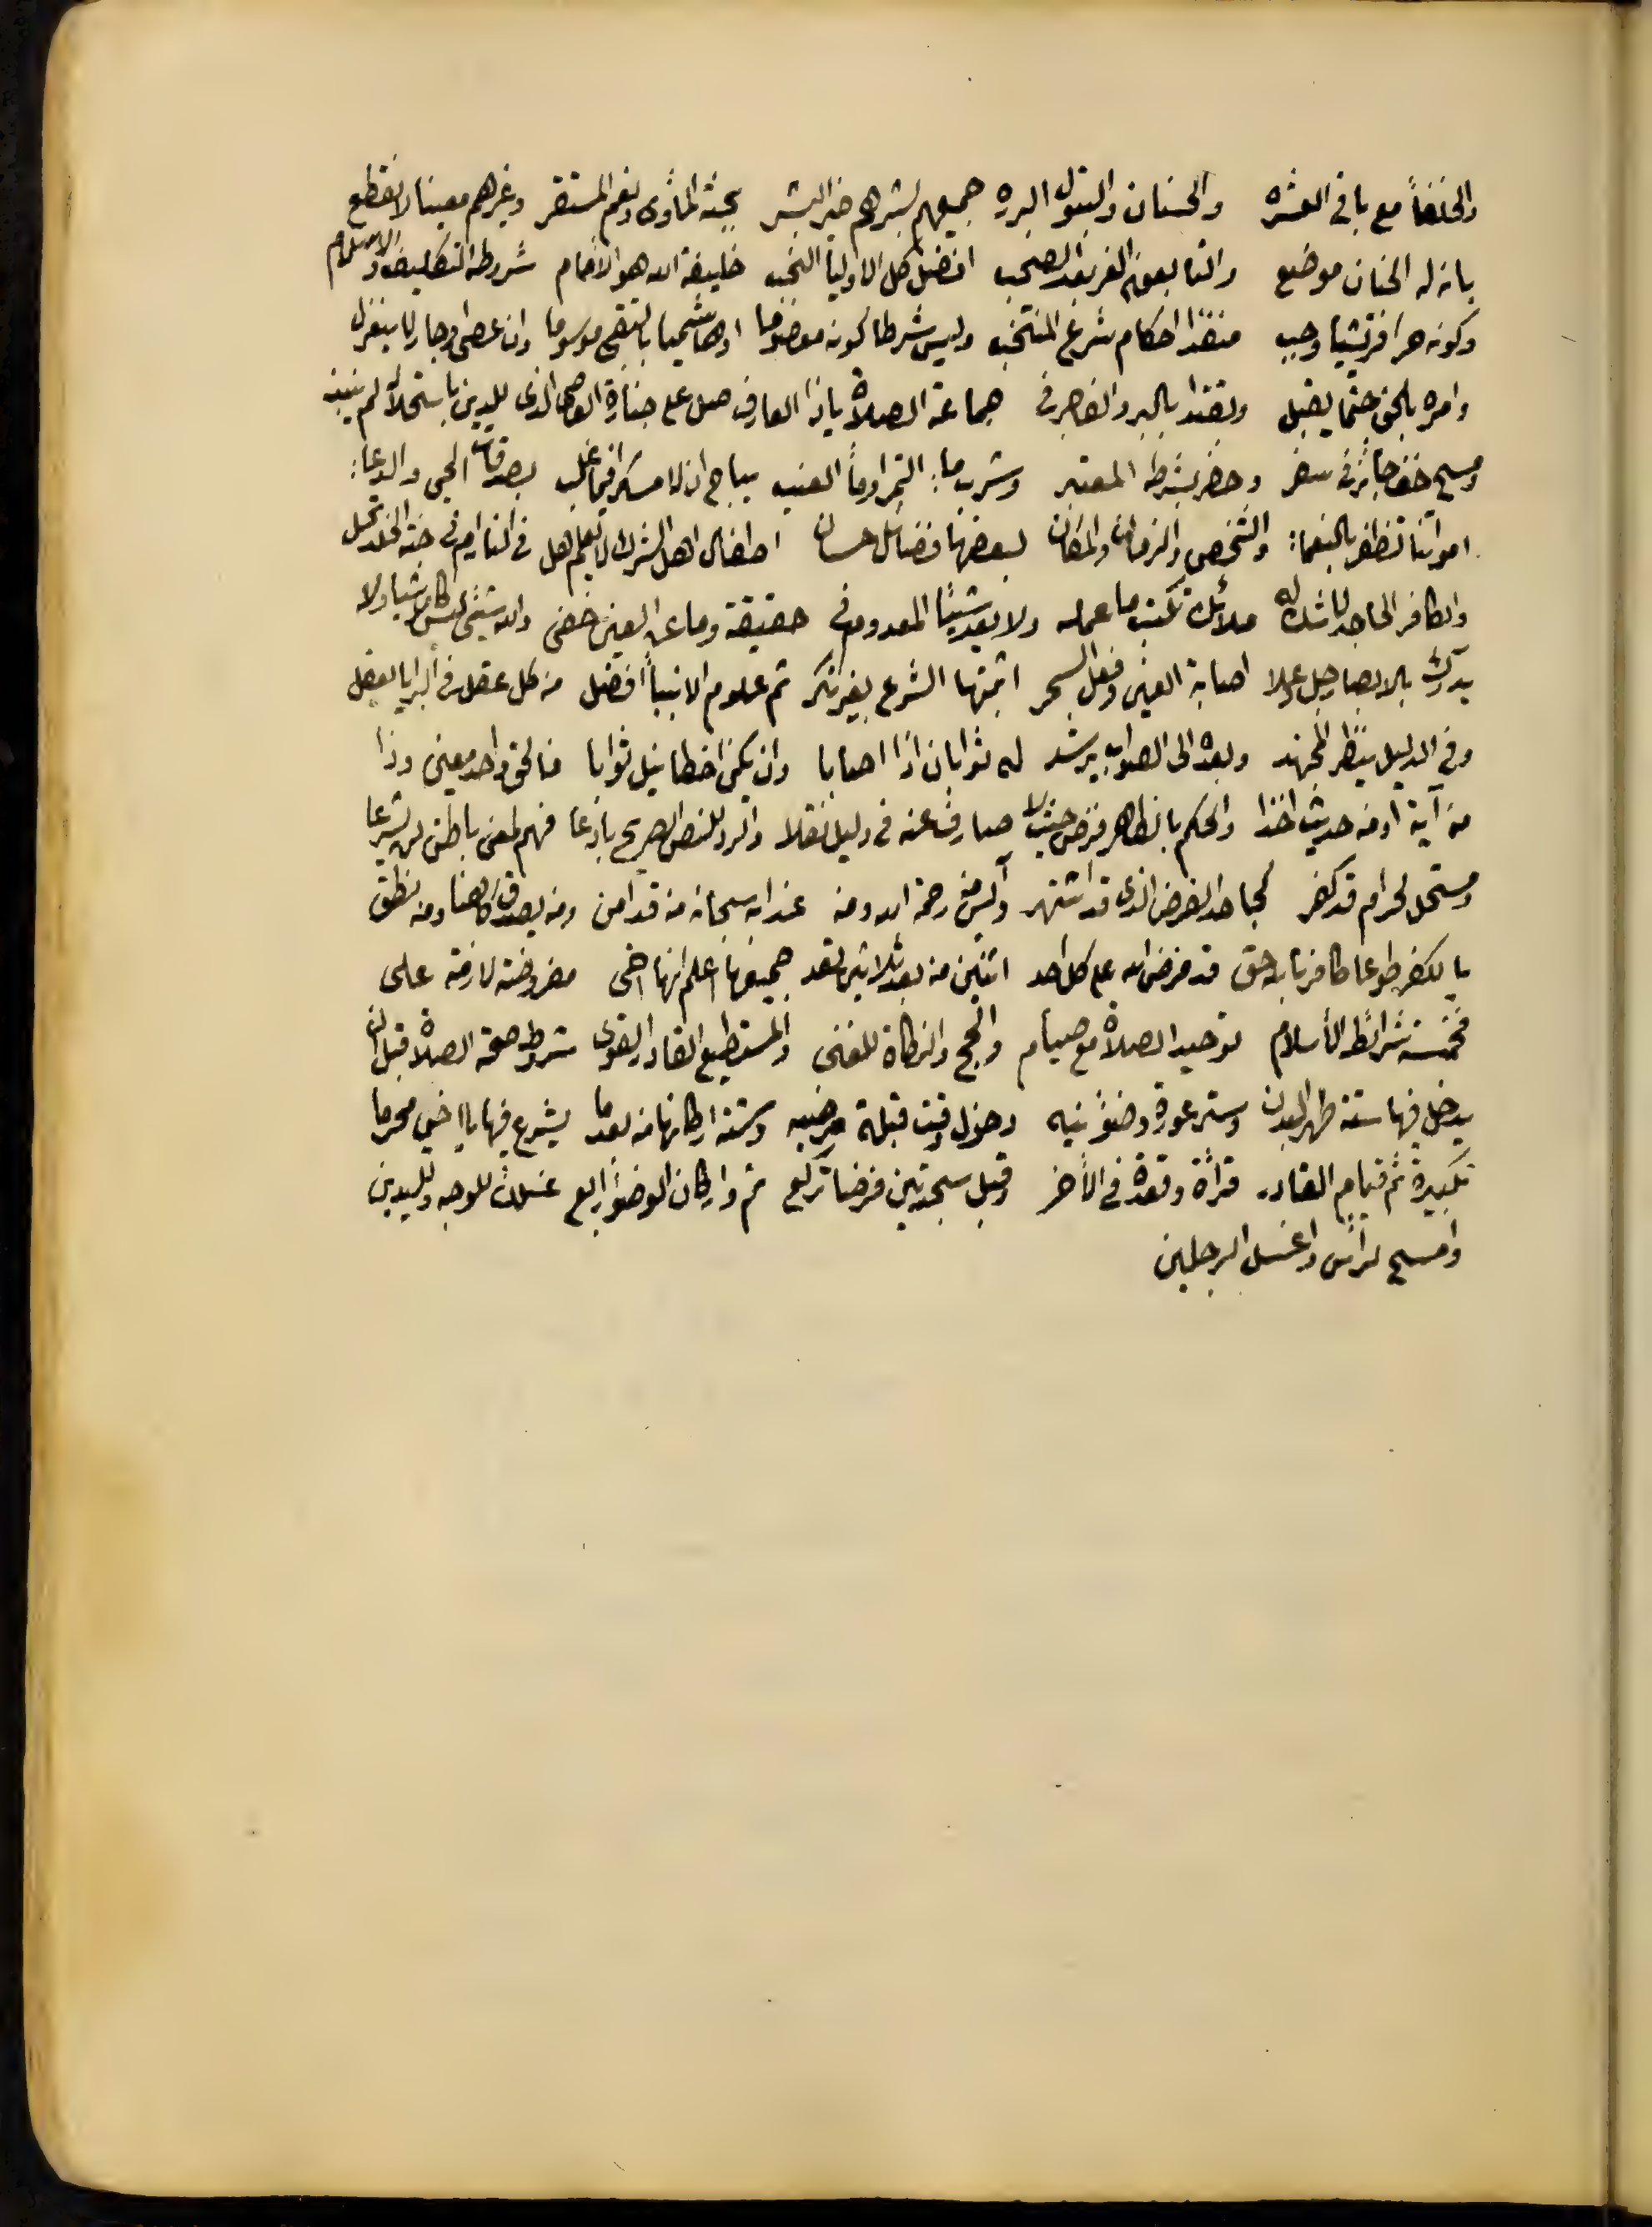 والخلفأ مع باقى العشره والحسنان والبتول البره جميعهم بشرهم خير البشر بجنة المأوى ونعم المستقر وغيرهم معينا لا نقطع
بانه له الجنان موضع والتابعون الغر بعد الصحب افضل كل الاوليأ النخب خليفة الله هو الامام شروطه التكليف والاسلام
وكونه حرا قريشيا وجب منفذا احكام شرع المنتخب وليس شرطا كونه معصوما او هاشميا بالتقى موسوما وان عصى او جار لا ينعزل
وامره بالحق حتما يقبل ويقتدا بالبر والفاجر فى جماعة الصلاة ياذا العارف صل على جنازة العاصى الذى للدين باستحلاله لم ينبذ
ومسح خف جائز فى سفر وحضر بشرطه المعتبر وشرب ما التمر او مأ العنب يباح ان لا مسكرا فيما غلب بصدقات الحى والدعا
امواتنا تظفر بالنعما والشخص والزمان والمكان لبعضها فضائل حسان اطفال اهل الشرك لا نعلم هل فى النار ام فى جنة الخلد تحل
والكافر الجاحد لا شك له ملائك تكتب ما عمله ولا يعد شيئا المعدوم فى حقيقة وما عن العين خفى والله شيئ ليس كالاشيا ولا
يدرك بالابصار جل وعلا اصابة العين وفعل السحر اثبتها الشرع بغير نكر ثم علوم الانبيأ افضل من كل عقل فى البرايا يعقل
وفى الدليل ينظر المجتهد وبعده الى الصواب يرشد له ثوابان اذا اصابا وان يكن اخطا ينيل ثوابا فالحق واحد معين وذا
من آية او من حديث اخذا والحكم بالظاهر فرض حيث لا صارف عنه فى دليل نقلا والرد للنص الصريح بادعا فهم لمعنى باطن لن يشرعا
ومستحل لحرام قد كفر كجاحد الفرض الذى قد اشتهر وآيس من رحمة الله ومن عذابه سبحانه من قد امن ومن يصدق كاهنا ومن نطق
بالكفر طوعا كافر نابه حق قد فرض الله على كل احد اثنين من بعد ثلاثين تعد جميعها اعلم انها اخى مفروضة لازمة على
فخمسة شرائط الاسلام توحيد الصلاة مع صيام والحج والزكاة للغنى والمستطيع القادر القوى شروط صحة الصلاة قبل ان
يدخل فيها ستة طهر البدن وستر عورة وضوٌ نيه دخول وقت قبلة مرضيه وستة اركانها من بعد ما يشرع فيها يا اخى محرما
تكبيرة ثم قيام القادر قرائة وقعدة فى الأخر وقبل سجدتين فرضا تركع ثم واركان الوضؤ اربع غسلات للوجه ولليدين
وامسح لرأس واغسل الرجلين